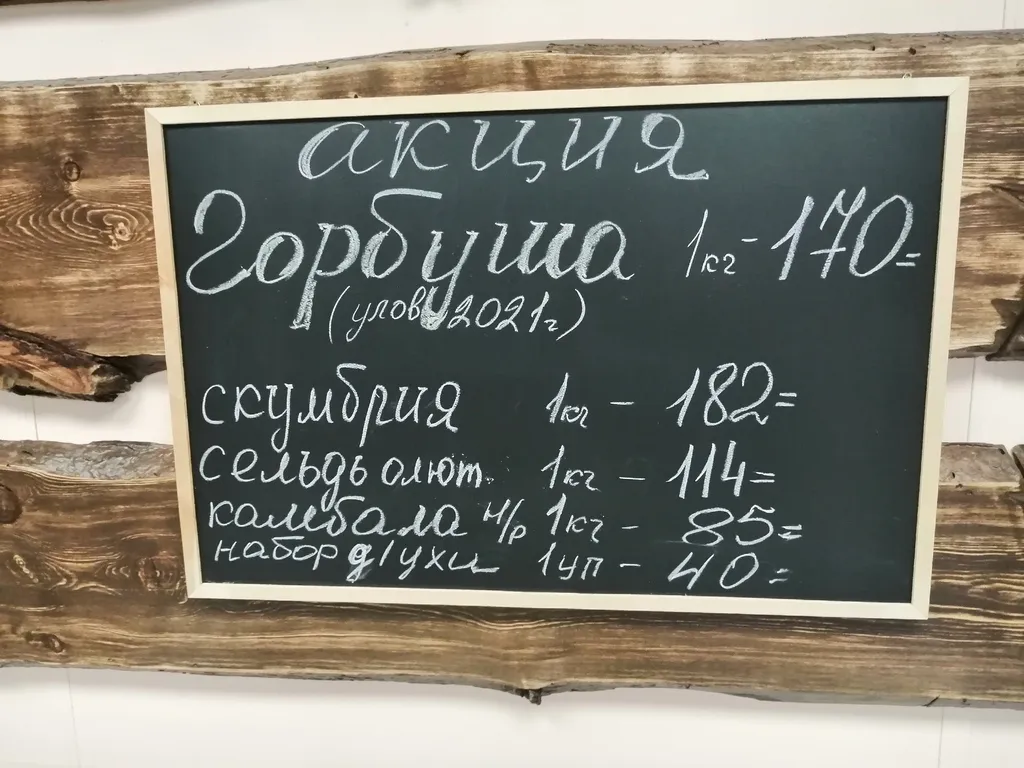 акция
Горбуша 1кг - 170=
(улов 2021г)
скумбрия 1кг - 182=
сельдь олют. 1кг - 114=
камбала н/р 1кг - 85=
набор д/ухи 1уп - 40=